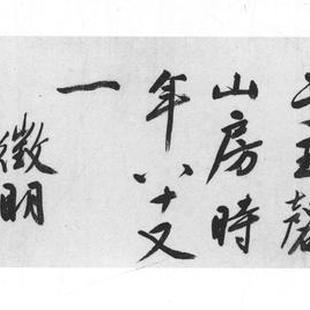 玉磬
山房時
年八十又
一
徵明